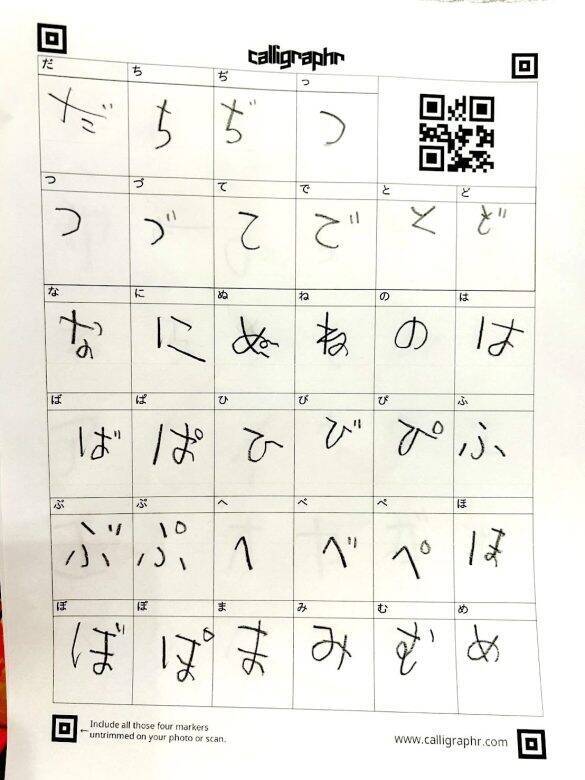 calligraphr
だ ち ぢ っ
だ ち ぢ つ
つ づ て で と ど
つ づ て で と ど
な に ぬ ね の は
な に ぬ ね の は
ば ぱ ひ び ぴ ふ
ば ぱ ひ び ぴ ふ
ぶ ぷ へ べ ぺ ほ
ぶ ぷ へ べ ぺ ほ
ぼ ぽ ま み む め
ぼ ぽ ま み む め
Include all those four markers
← untrimmed on your photo or scan.
www.calligraphr.com